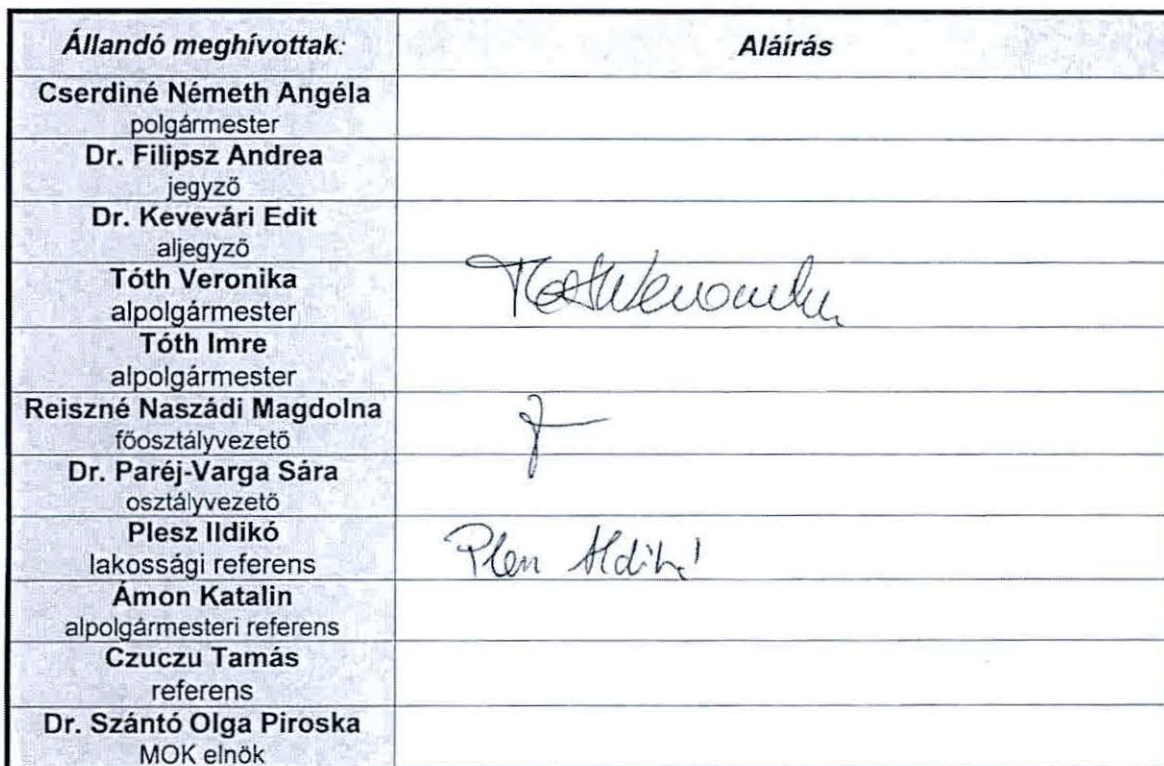 Állandó meghívottak: Aláírás
Cserdiné Németh Angéla
polgármester
Dr. Filipsz Andrea
jegyző
Dr. Kevevári Edit
aljegyző
Tóth Veronika
alpolgármester
Tóth Imre
alpolgármester
Reiszné Naszádi Magdolna
főosztályvezető
Dr. Paréj-Varga Sára
osztályvezető
Plesz Ildikó
lakossági referens
Ámon Katalin
alpolgármesteri referens
Czuczu Tamás
referens
Dr. Szántó Olga Piroska
MOK elnök